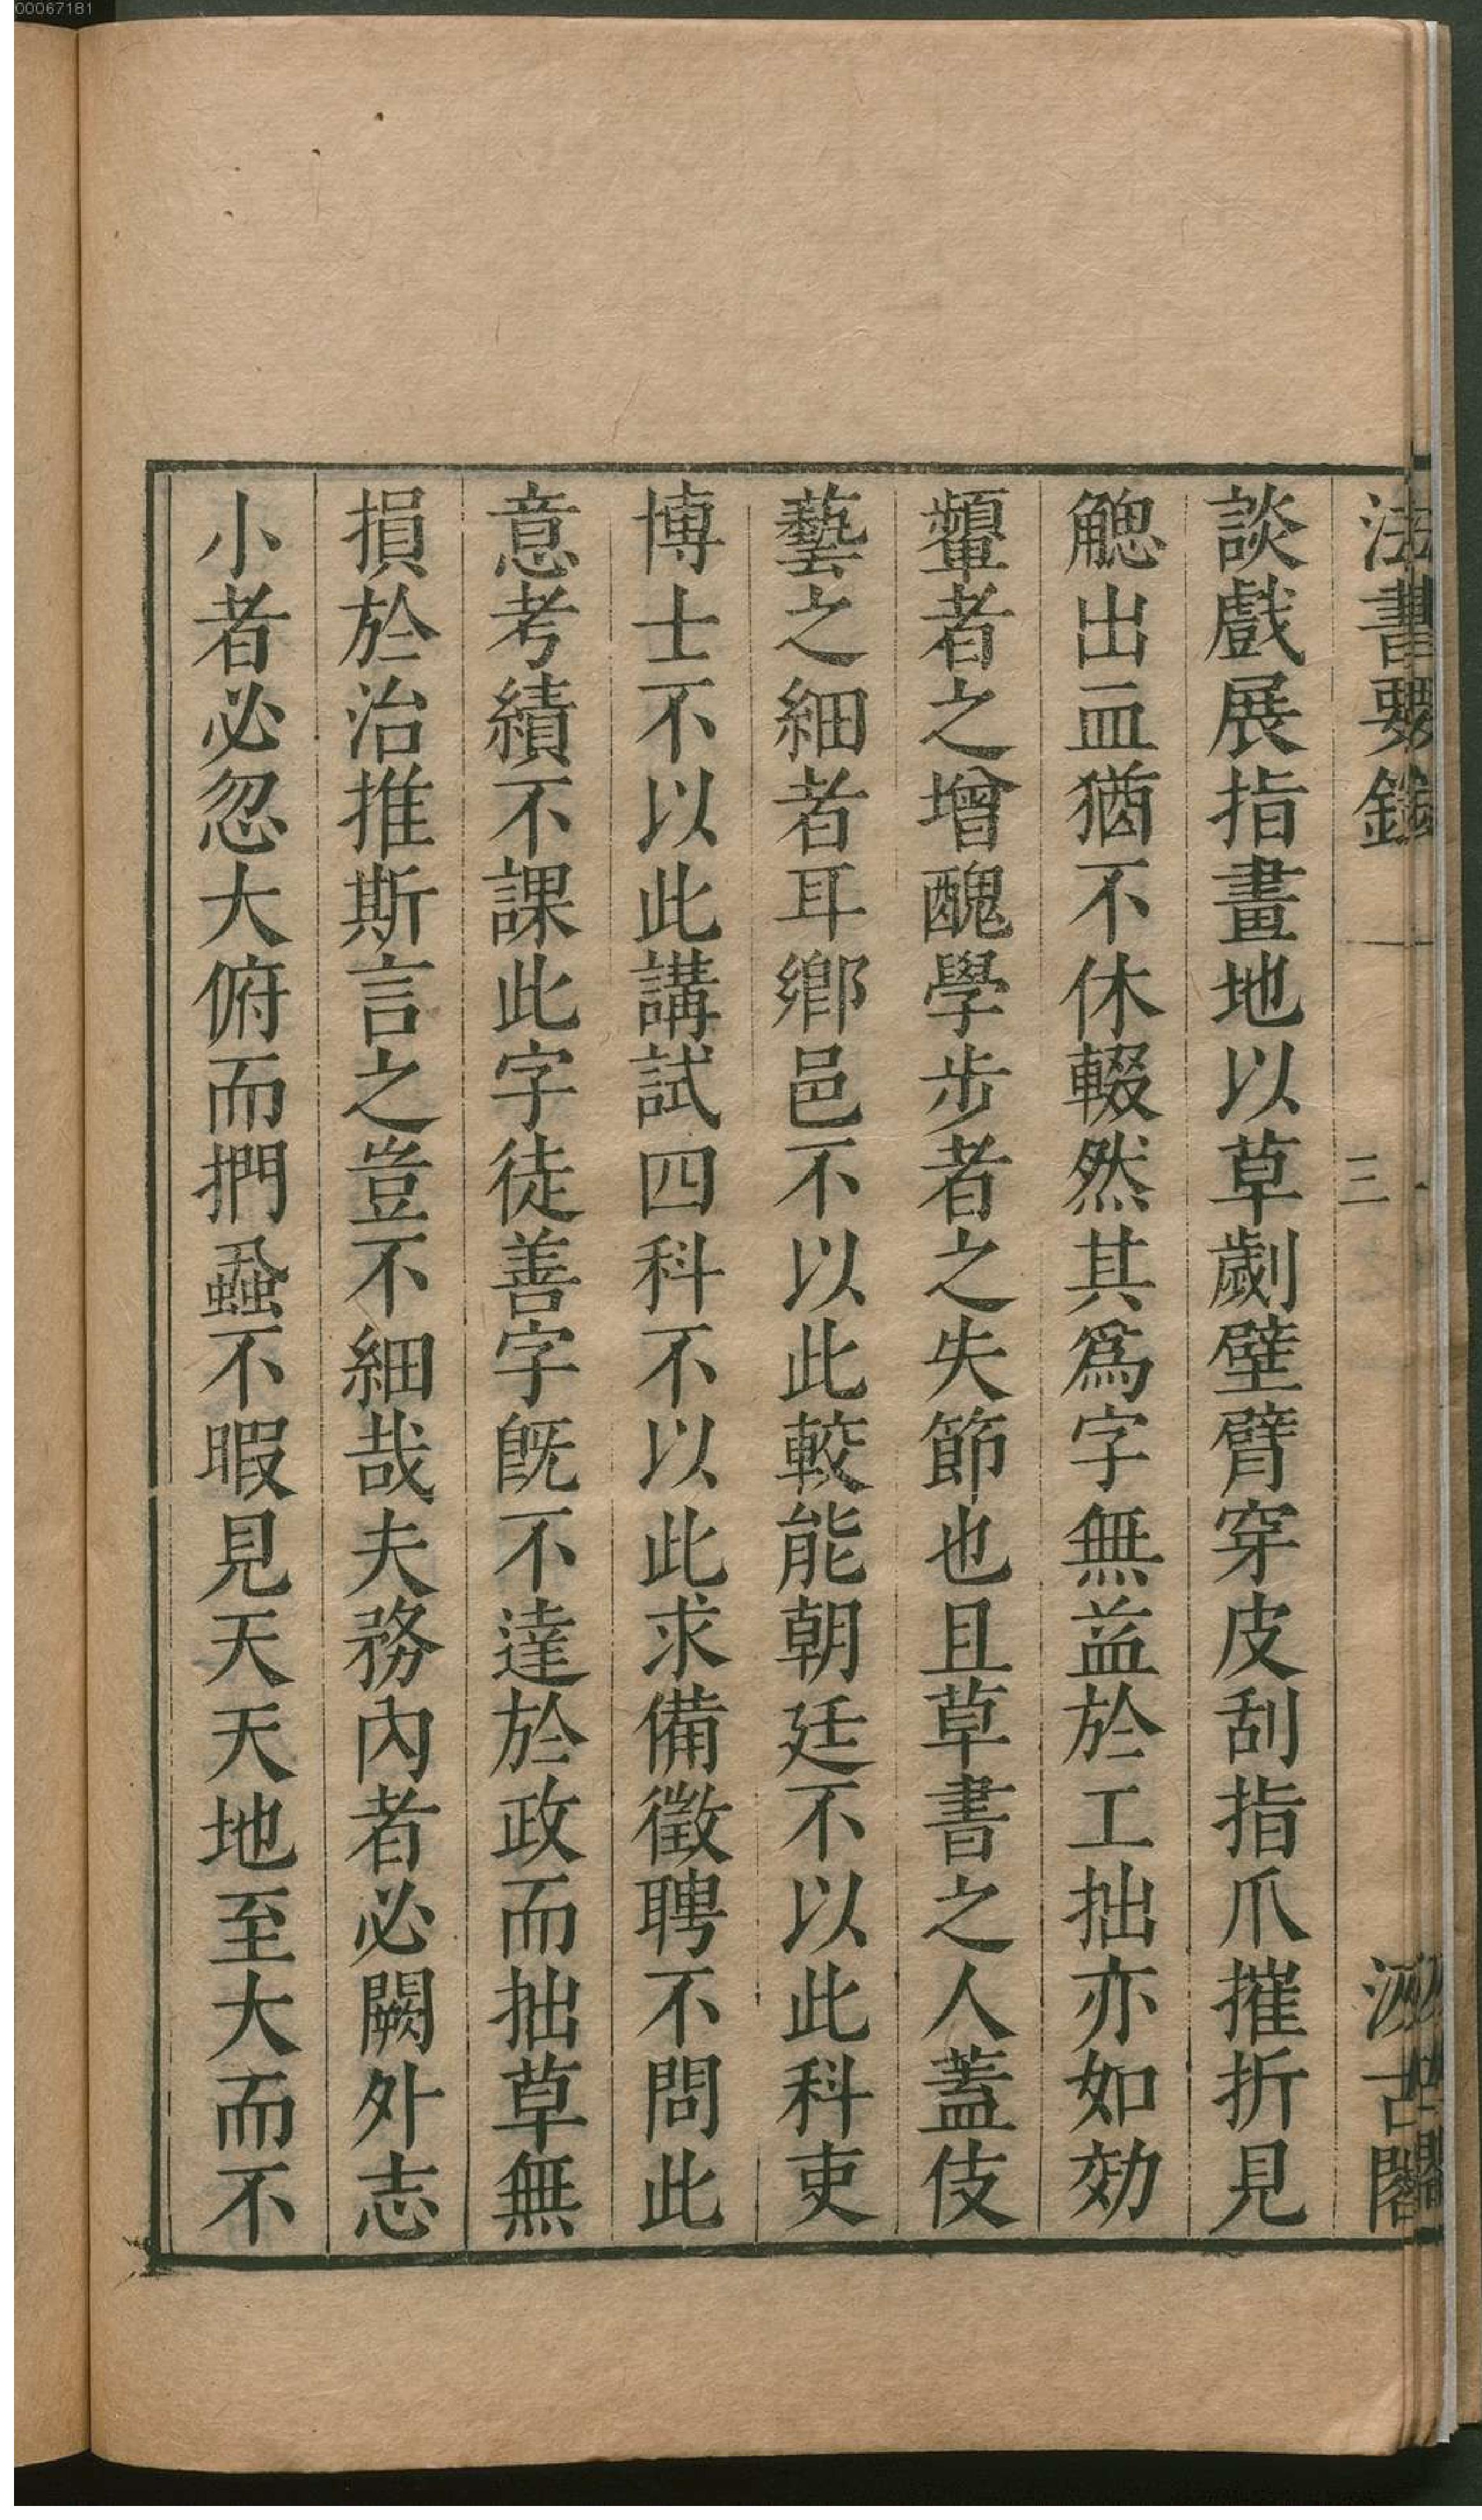 00067181
法書要錄
三
汲古閣
談戲展指畫地以草劌壁臂穿皮刮指爪摧折見
䚡出血猶不休輟然其爲字無益於工拙亦如効
顰者之增醜學步者之失節也且草書之人蓋伎
藝之細者耳鄉邑不以此較能朝廷不以此科吏
博士不以此講試四科不以此求備徵聘不問此
意考績不課此字徒善字旣不達於政而拙草無
損於治推斯言之豈不細哉夫務內者必闕外志
小者必忽大俯而捫蝨不暇見天天地至大而不